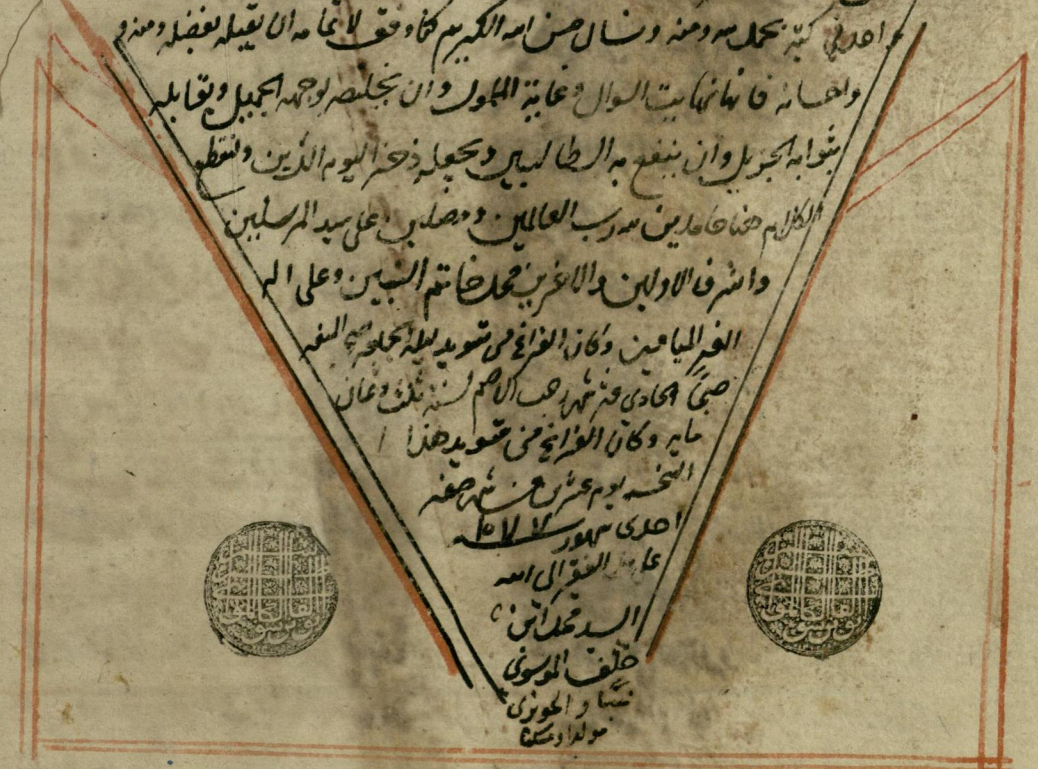 احدى كتبه بحمد الله ومنه ونسال من الله الكريم كما وفق لاتمامه ان يقيله بفضله ومنه
واحسانه فانها نهايت السوال وغاية المامول وان يجعله لوجهه الجميل ويقابله
بثوابه الجزيل وان ينفع به الطالبين ويجعله ذخرا ليوم الدين ولنقطع
الكلام هنا حامدين لله رب العالمين ومصلين على سيد المرسلين
واشرف الاولين والاخرين محمد خاتم النبيين وعلى اله
الغر الميامين وكان الفراغ من تسويده ليلة الجمعه
الحادي شهر رجب الاصم لسنة ثلث وثمان
مايه وكان الفراغ من تسويد هذا
النسخه يوم عشرين من شهر صفر
احدى شهور ١٠٧٧
الفقير الى الله
السيد محمد ابن
خلف الموسوي
نسبا والحويزي
مولدا ومسكنا